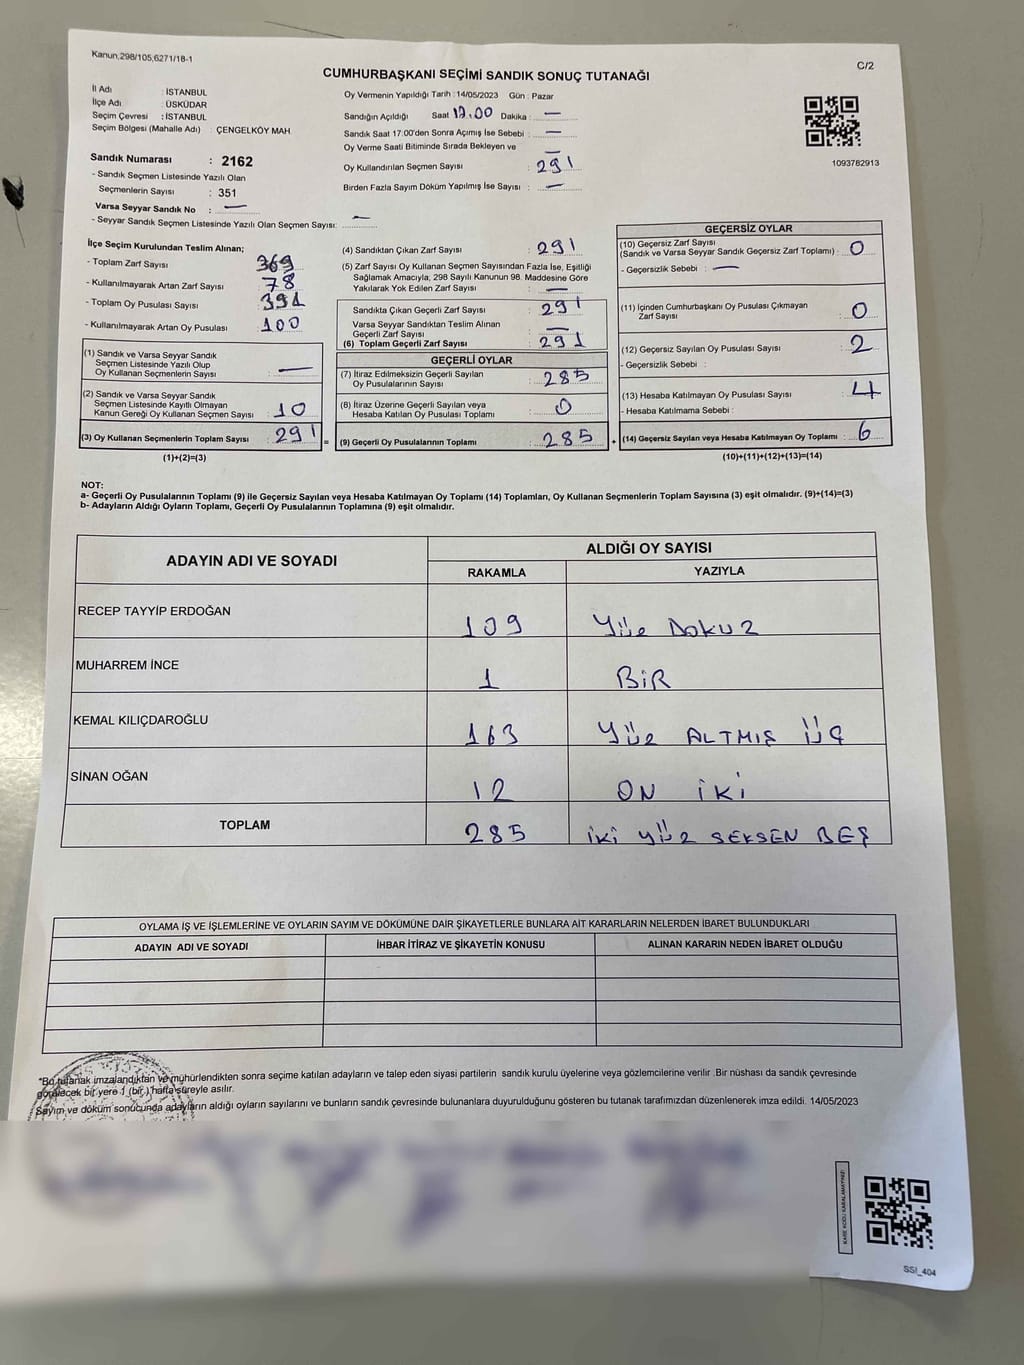 Kanun,298/105,6271/18-1
C/2
CUMHURBAŞKANI SEÇİMİ SANDIK SONUÇ TUTANAĞI
İl Adı : İSTANBUL
İlçe Adı : ÜSKÜDAR
Seçim Çevresi : İSTANBUL
Seçim Bölgesi (Mahalle Adı) : ÇENGELKÖY MAH.
Oy Vermenin Yapıldığı Tarih : 14/05/2023 Gün : Pazar
Sandığın Açıldığı Saat Dakika : —
Sandık Saat 17:00'den Sonra Açımış İse Sebebi : —
Oy Verme Saati Bitiminde Sırada Bekleyen ve —
Oy Kullandırılan Seçmen Sayısı : 291
Birden Fazla Sayım Döküm Yapılmış İse Sayısı : —
1093782913
Sandık Numarası : 2162
- Sandık Seçmen Listesinde Yazılı Olan
Seçmenlerin Sayısı : 351
Varsa Seyyar Sandık No : —
- Seyyar Sandık Seçmen Listesinde Yazılı Olan Seçmen Sayısı: —
İlçe Seçim Kurulundan Teslim Alınan;
- Toplam Zarf Sayısı : 369
- Kullanılmayarak Artan Zarf Sayısı : 78
- Toplam Oy Pusulası Sayısı : 391
- Kullanılmayarak Artan Oy Pusulası : 100
(1) Sandık ve Varsa Seyyar Sandık
Seçmen Listesinde Yazılı Olup
Oy Kullanan Seçmenlerin Sayısı : —
(2) Sandık ve Varsa Seyyar Sandık
Seçmen Listesinde Kayıtlı Olmayan
Kanun Gereği Oy Kullanan Seçmen Sayısı : 10
(3) Oy Kullanan Seçmenlerin Toplam Sayısı : 291 =
(1)+(2)=(3)
(4) Sandıktan Çıkan Zarf Sayısı : 291
(5) Zarf Sayısı Oy Kullanan Seçmen Sayısından Fazla İse, Eşitliği
Sağlamak Amacıyla, 298 Sayılı Kanunun 98. Maddesine Göre
Yakılarak Yok Edilen Zarf Sayısı : —
Sandıkta Çıkan Geçerli Zarf Sayısı : 291
Varsa Seyyar Sandıktan Teslim Alınan
Geçerli Zarf Sayısı : —
(6) Toplam Geçerli Zarf Sayısı : 291
GEÇERLİ OYLAR
(7) İtiraz Edilmeksizin Geçerli Sayılan
Oy Pusulalarının Sayısı : 285
(8) İtiraz Üzerine Geçerli Sayılan veya
Hesaba Katılan Oy Pusulası Toplamı : 0
(9) Geçerli Oy Pusulalarının Toplamı : 285 +
GEÇERSİZ OYLAR
(10) Geçersiz Zarf Sayısı
(Sandık ve Varsa Seyyar Sandık Geçersiz Zarf Toplamı) : 0
- Geçersizlik Sebebi : —
(11) İçinden Cumhurbaşkanı Oy Pusulası Çıkmayan
Zarf Sayısı : 0
(12) Geçersiz Sayılan Oy Pusulası Sayısı : 2
- Geçersizlik Sebebi :
(13) Hesaba Katılmayan Oy Pusulası Sayısı : 4
- Hesaba Katılmama Sebebi :
(14) Geçersiz Sayılan veya Hesaba Katılmayan Oy Toplamı : 6
(10)+(11)+(12)+(13)=(14)
NOT:
a- Geçerli Oy Pusulalarının Toplamı (9) ile Geçersiz Sayılan veya Hesaba Katılmayan Oy Toplamı (14) Toplamları, Oy Kullanan Seçmenlerin Toplam Sayısına (3) eşit olmalıdır. (9)+(14)=(3)
b- Adayların Aldığı Oyların Toplamı, Geçerli Oy Pusulalarının Toplamına (9) eşit olmalıdır.
ADAYIN ADI VE SOYADI
ALDIĞI OY SAYISI
RAKAMLA YAZIYLA
RECEP TAYYİP ERDOĞAN 109 Yüz DOKUZ
MUHARREM İNCE 1 BİR
KEMAL KILIÇDAROĞLU 163 YÜZ ALTMIŞ ÜÇ
SİNAN OĞAN 12 ON İKİ
TOPLAM 285 İKİ YÜZ SEKSEN BEŞ
OYLAMA İŞ VE İŞLEMLERİNE VE OYLARIN SAYIM VE DÖKÜMÜNE DAİR ŞİKAYETLERLE BUNLARA AİT KARARLARIN NELERDEN İBARET BULUNDUKLARI
ADAYIN ADI VE SOYADI İHBAR İTİRAZ VE ŞİKAYETİN KONUSU ALINAN KARARIN NEDEN İBARET OLDUĞU
*Bu tutanak imzalandıktan ve mühürlendikten sonra seçime katılan adayların ve talep eden siyasi partilerin sandık kurulu üyelerine veya gözlemcilerine verilir .Bir nüshası da sandık çevresinde
görülecek bir yere 1 (bir ) hafta süreyle asılır.
Sayım ve döküm sonucunda adayların aldığı oyların sayılarını ve bunların sandık çevresinde bulunanlara duyurulduğunu gösteren bu tutanak tarafımızdan düzenlenerek imza edildi. 14/05/2023
KARE KODU KARALAMAYINIZ!
SSİ_404